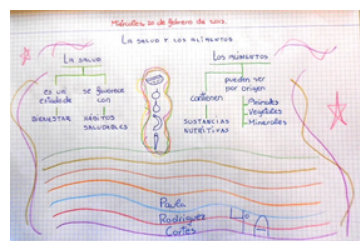 Miércoles, 20 de febrero de 2013.
LA SALUD Y LOS ALIMENTOS
LA SALUD
es un
estado de
BIENESTAR
se favorece
con
HÁBITOS
SALUDABLES
LOS ALIMENTOS
contienen
SUSTANCIAS
NUTRITIVAS
pueden ser
por origen
Animales
Vegetales
Minerales
Paula
Rodríguez
Cortés